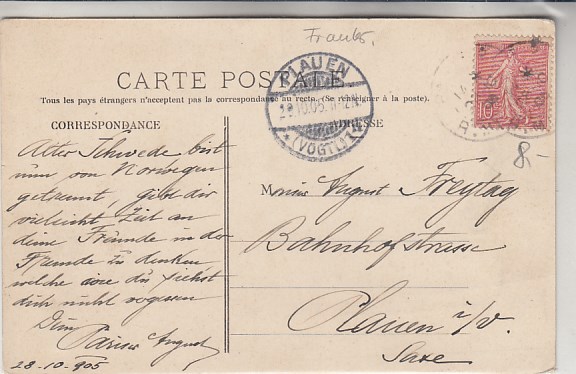 Frankr.
CARTE POSTALE
Tous les pays étrangers n'acceptent pas la correspondance au recto. (Se renseigner à la poste).
CORRESPONDANCE
ADRESSE
PLAUEN
(VOGTL)
10
8.-
Alter Schwede bist
nun von Norwegen
getrennt, gibt dir
vielleicht Zeit an
deine Freunde in der
Fremde zu denken
welche dich nicht
Dein
Pariser August
28-10-905
M August Freytag
Bahnhofstrasse
Plauen i/V.
Saxe